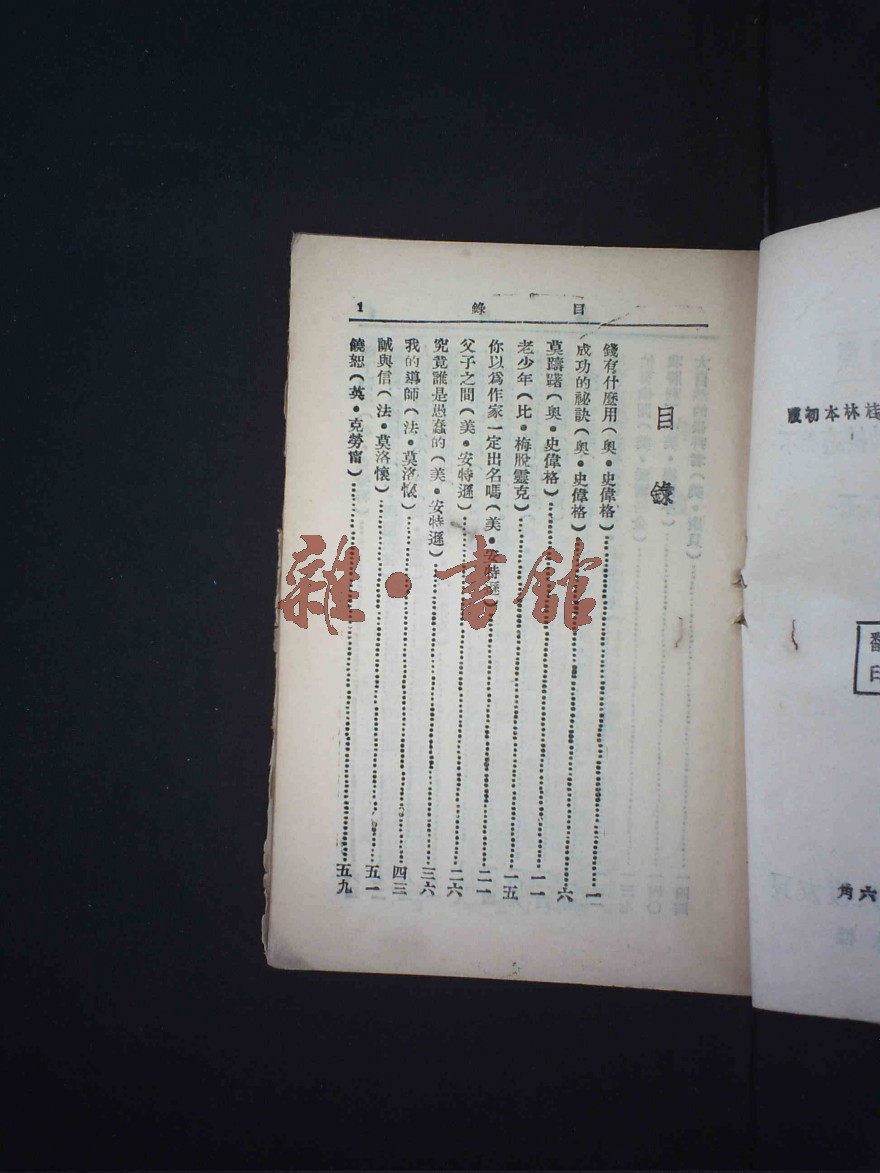 目 錄 1
目錄
錢有什麽用(奧·史偉格)……一
成功的祕訣(奧·史偉格)……六
莫躊躇(奧·史偉格)……一一
老少年(比·梅脫靈克)……一五
你以爲作家一定出名嗎(美·安特遜)……二一
父子之間(美·安特遜)……二六
究竟誰是愚蠢的(美·安特遜)……三六
我的導師(法·莫洛懷)……四三
誠與信(法·莫洛懷)……五一
饒恕(英·克勞甯)……五九
雜·書館
桂林本初版
翻印
六角